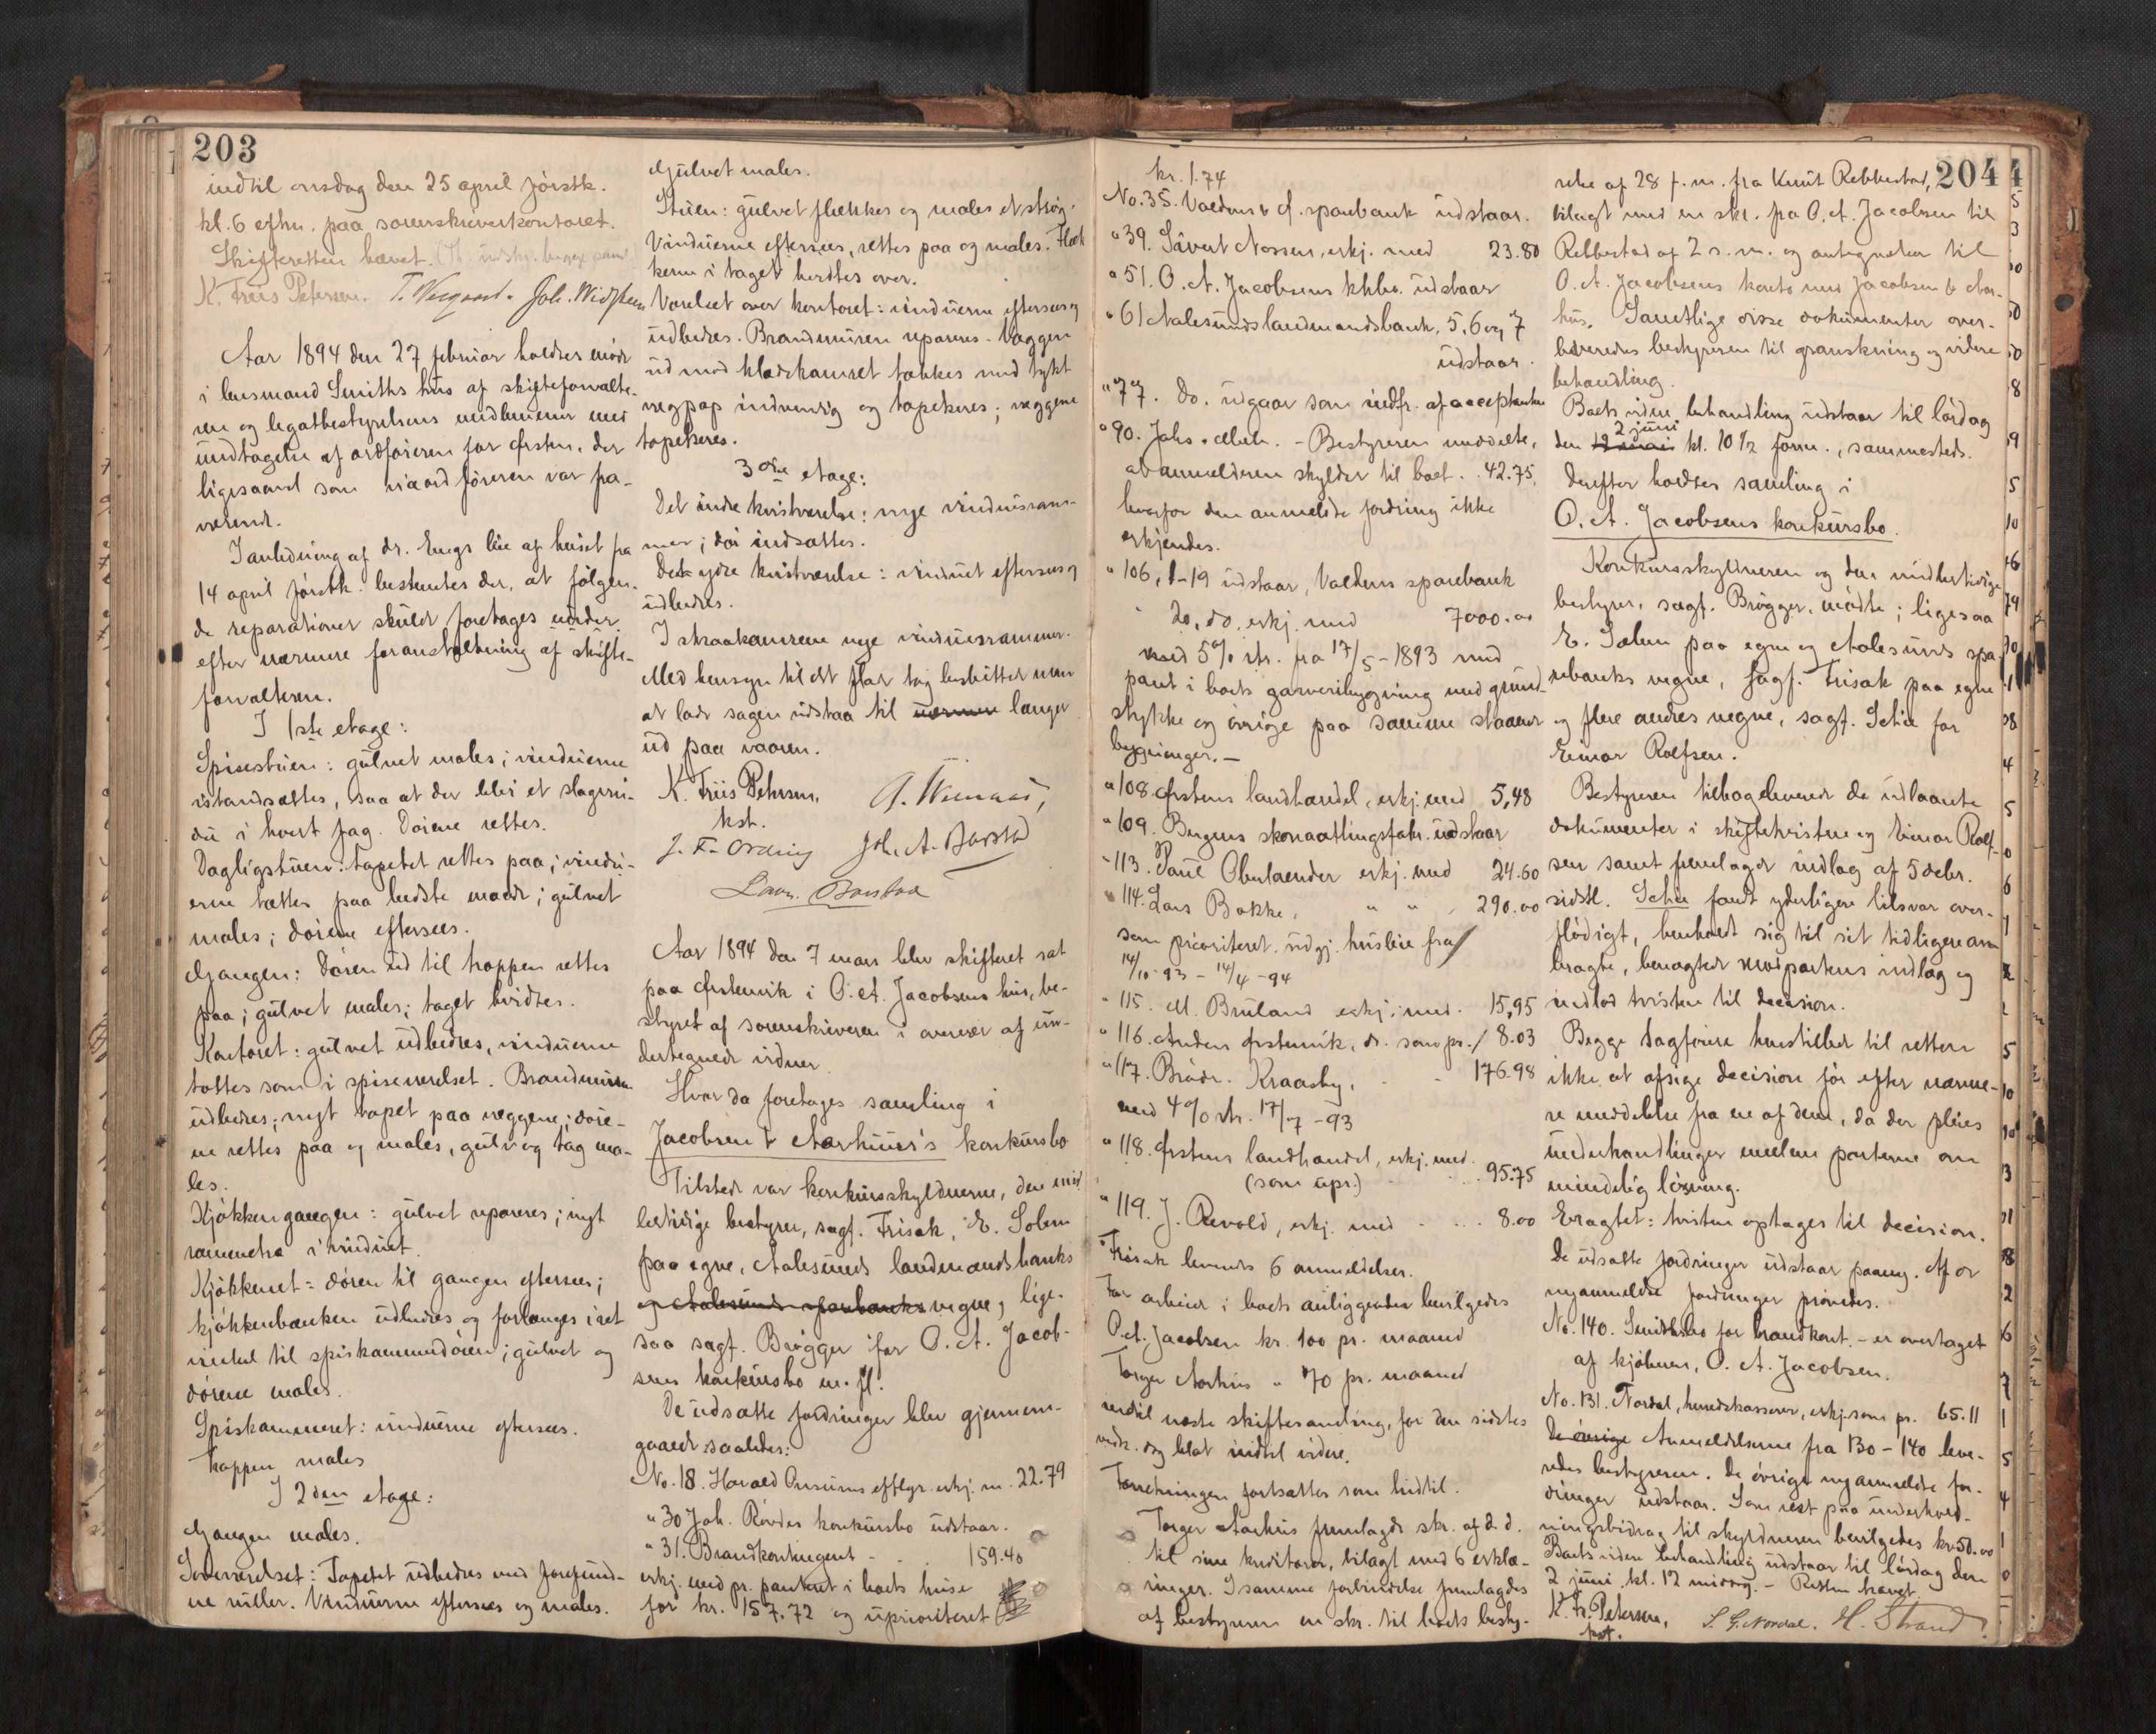 203
indtil onsdag den 25 april førstk.
kl. 6 efm. paa sorenskriverkontoret.
Skifteretten hævet.
K. Friis Petersen. T. Vesgaard. Joh. Widsteen
Aar 1894 den 27 februar holdtes møde
i lensmand Smiths hus af skifteforvalte-
ren og legatbestyrelsens medlemmer med
undtagelse af ordføreren for Ørsten, der
ligesaavel som viceordføreren var fra-
værende.
I anledning af dr. Engs leie af huset fra
14 april førstk. bestemtes der, at følgen-
de reparationer skulde foretages under
efter nærmere foranstaltning af skifte-
forvalteren.
I 1ste etage:
Spisestuen: gulvet males; vinduerne
istandsættes, saa at der blir et slagvin-
du i hvert fag. Dørene rettes.
Dagligstuen: tapetet rettes paa; vindu-
erne tættes paa bedste maade; gulvet
males; dørene eftersees.
Gangen: Døren ud til trappen rettes
paa; gulvet males; taget hvidtes.
Kontoret: gulvet udbedres, vinduerne
tættes som i spiseværelset. Brandmuren
udbedres; nyt tapet paa væggene; døre-
ne rettes paa og males, gulv og tag ma-
les.
Kjøkkengangen: gulvet repareres; nyt
rammetræ i vinduet.
Kjøkkenet: døren til gangen eftersees;
kjøkkenbænken udbedres og forlænges i ret
vinkel til spiskammerdøren; gulvet og
dørene males.
Spiskammeret: vinduerne eftersees.
Trappen males
I 2den etage:
Gangen males.
Soveværelset: Tapetet udbedres med forefind-
ne ruller. Vinduerne eftersees og males.
Gulvet males.
Stuen: gulvet flekkes og males et strøg.
Vinduerne eftersees, rettes paa og males. Flæk-
kerne i taget hvidtes over.
Værelset over kontoret: vinduerne eftersees og
udbedres. Brandmuren repareres. Væggen
ud mod klædekamret tækkes med tykt
vægpap indvendig og tapetseres; væggene
tapetseres.
3die etage:
Det indre kvistværelse: nye vinduesram-
mer; dør indsættes.
Det ydre kvistværelse: vinduet eftersees og
udbedres.
I skraakamrene nye vinduesrammer.
Med hensyn til det flade tag besluttet man
at lade sagen udstaa til nærmere længer
ud paa vaaren.
K. Friis Petersen,
kst.
J. F. Ording Joh. A. Barstad
Laur. Barstad
Aar 1894 den 7 mars blev skifteret sat
paa Ørstenvik i O. A. Jacobsens hus, be-
styret af sorenskriveren i overvær af un-
dertegnede vidner.
Hvor da foretoges samling i
Jacobsen & Aarhuus's konkursbo
Tilstede var konkursskyldnerne, den mid-
lertidige bestyrer, sagf. Frisak, E. Solem
paa egne, Aalesunds landmandsbanks
og Aalesunds sparebanks vegne, lige-
saa sagf. Brøgger for O. A. Jacob-
sens konkursbo m. fl.
De udsatte fordringer blev gjennem-
gaaede saaledes:
No. 18. Harald Aursunds eftflgr. erkj. m. 22.79
" 30 Joh. Røvdes konkursbo udstaar.
" 31. Brandkontingent - . . 159.40
erkj. med pr. panteret i boets huse
for kr. 157.72 og uprioriteret
kr. 1.74
No. 35. Voldens & Ø. sparebank udstaar.
" 39. Sivert Nossen, erkj. med 23.80
" 51. O. A. Jacobsens kkbo. udstaar
" 61 Aalesunds landmandsbank, 5, 6 og 7
udstaar.
" 77. Do. udgaar som indfr. af acceptanten
" 90. Johs. Aleh. - Bestyreren meddelte,
at anmelderen skylder til boet . . 42.75,
hvorfor den anmeldte fordring ikke
erkjendes.
" 106, 1-19 udstaar, Voldens sparebank
" 20, do. erkj. med 7000.00
med 5% rtr. fra 17/5 - 1893 med
pant i boets garveribygning med grund-
stykke og øvrige paa samme staaende
bygninger. -
" 108. Ørstens landhandel, erkj. med 5,48
" 109. Bergens skomaatlingsfabr. udstaar
" 113. Paul Oberlaender erkj. med 24.60
" 114. Lars Bakke, " " 290.00
som prioriteret. udgj. husleie fra
14/10 - 93 - 14/4 - 94
" 115. M. Bruland erkj. med. 15,95
" 116. Anders Ørstenvik, do. som pr. 18.03
" 117. Brødr. Kraasby, . . 176.98
med 4% rtr. 17/7 - 93
" 118. Ørstens landhandel, erkj. med
(som upr.) . . . 95.75
" 119. J. Revold, erkj. med . . . 8.00
Frisak leverede 6 anmeldelser.
For arbeide i boets anliggender bevilgedes
O. A. Jacobsen kr. 100 pr. maaned
Torger Aarhus " 70 pr. maaned
indtil næste skiftesamling, for den sidstes
vedk. dog blot indtil videre.
Forretningen fortsættes som hidtil.
Torger Aarhus fremlagde skr. af d. d.
til sine kreditorer, bilagt med 6 erklæ-
ringer. I samme forbindelse fremlagdes
af bestyreren en skr. til boets besty-
204
relse af 28 f. m. fra Knut Rebbestad,
bilagt med en skr. fra O. A. Jacobsen til
Rebbestad af 2 s. m. og antegnelser til
O. A. Jacobsens konto med Jacobsen & Aar-
hus. Samtlige disse dokumenter over-
leveredes bestyreren til granskning og videre
behandling.
Boets videre behandling udstaar til lørdag
2 juni
den 12 mai kl. 10 1/2 form., sammesteds.
Derefter holdtes samling i
O. A. Jacobsens konkursbo.
Konkursskyldneren og den midlertidige
bestyrer, sagf. Brøgger, mødte; ligesaa
E. Solem paa egne og Aalesunds spa-
rebanks vegne, sagf. Frisak paa egne
og flere andres vegne, sagf. Schie for
Einar Rolfsen.
Bestyreren tilbageleverede de udlaante
dokumenter i skiftetvisten og Einar Rolf-
sen samt fremlagde indlæg af 5 decbr.
sidstl. Schie fandt yderligere tilsvar over-
flødigt, henholdt sig til sit tidligere an-
bragte, benægtede modpartens indlæg og
indlod tvisten til decision.
Begge sagførere henstillede til retten
ikke at afsige decision før efter nærme-
re meddelelse fra en af dem, da der pleies
underhandlinger mellem parterne om
mindelig løsning.
Eragtet: tvisten optages til decision.
De udsatte fordringer udstaar paany. Af de
nyanmeldte fordringer prøvedes.
No. 140. Smiths bo for brandkont. - er overtaget
af kjøberen, O. A. Jacobsen.
No. 131. Nordal, herredskasserer, erkj. som pr. 65.11
De øvrige Anmeldelserne fra 130 - 140 leve-
redes bestyreren. De øvrige nyanmeldte for-
dringer udstaar. Som rest paa underhold-
ningsbidrag til skyldneren bevilgedes kr. 50.00
Boets videre behandling udstaar til lørdag den
2 juni kl. 12 middag. - Retten hævet
K. Fr. Petersen,
kst.
S. G. Nordal. H. Strand